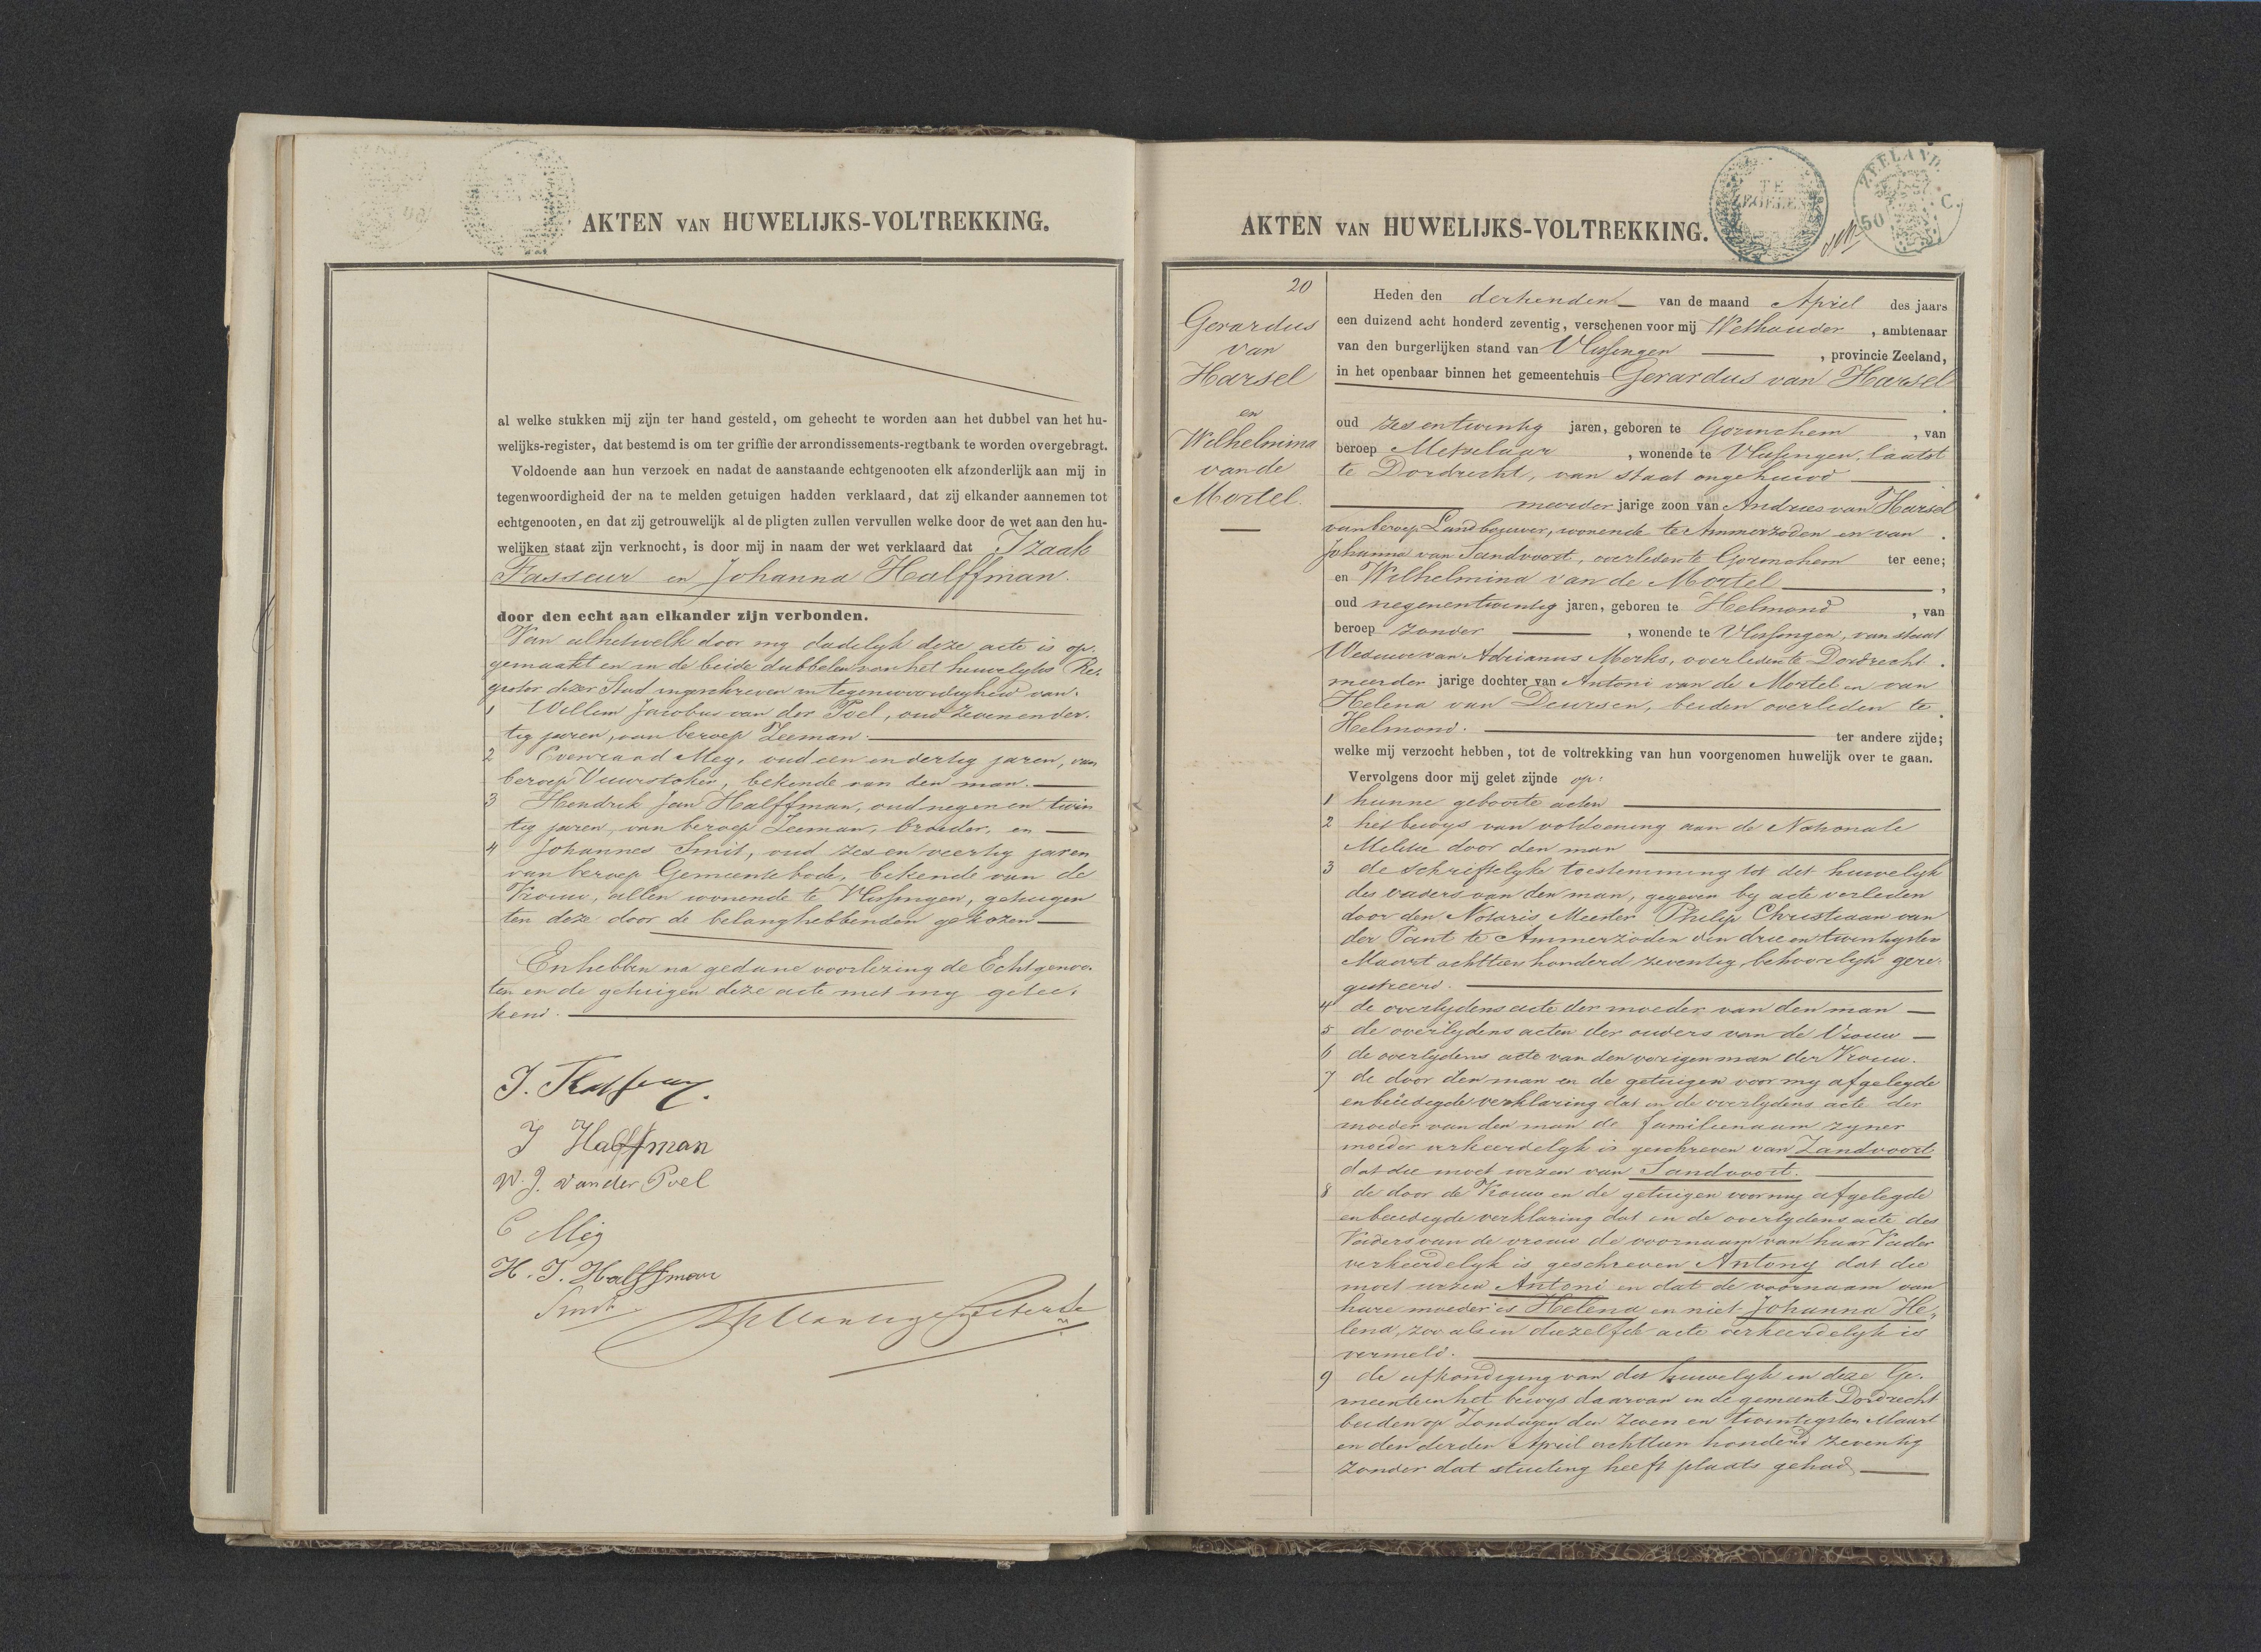 AKTEN VAN HUWELIJKS-VOLTREKKING.
al welke stukken mij zijn ter hand gesteld, om gehecht te worden aan het dubbel van het hu-
welijks-register, dat bestemd is om ter griffie der arrondissements-regtbank te worden overgebragt.
Voldoende aan hun verzoek en nadat de aanstaande echtgenooten elk afzonderlijk aan mij in
tegenwoordigheid der na te melden getuigen hadden verklaard, dat zij elkander aannemen tot
echtgenooten, en dat zij getrouwelijk al de pligten zullen vervullen welke door de wet aan den hu-
welijken staat zijn verknocht, is door mij in naam der wet verklaard dat Izaak
Fasseur en Johanna Halffman.
door den echt aan elkander zijn verbonden.
Van alhetwelk door my dadelyk deze acte is op-
gemaakt en in de beide dubbelen van het huwelyks Re-
gister dezer Stad ingeschreven in tegenwoordigheid van.
1 Willem Jacobus van der Poel, oud zevenender-
tig jaren, van beroep Zeeman.
2 Everaard Meg, oud een en dertig jaren, van
beroep Vuurstoker, bekende van den man.
3 Hendrik Jan Halffman, oud negen en twin
tig jaren, van beroep Zeeman, broeder, en
4 Johannes Smit, oud zes en veertig jaren
van beroep Gemeentebode, bekende van de
Vrouw, allen wonende te Vlissingen, getuigen
ten deze door de belanghebbenden gekozen
En hebben na gedane voorlezing de Echtgenoo-
ten en de getuigen deze acte met my getee-
kend.
J. Fasseur
J Halffman
W. J. van der Poel
E Meg
H. J. Halffman
Smit
AKTEN VAN HUWELIJKS-VOLTREKKING.
TE ZEGELEN
ZEELAND
50 C.
20
Gerardus
van
Harsel
en
Wilhelmina
van de
Mortel.
Heden den dertienden van de maand April des jaars
een duizend acht honderd zeventig, verschenen voor mij Wethouder, ambtenaar
van den burgerlijken stand van Vlissingen, provincie Zeeland,
in het openbaar binnen het gemeentehuis Gerardus van Harsel
oud zes en twintig jaren, geboren te Gorinchem, van
beroep Metselaar, wonende te Vlissingen, laatst
te Dordrecht, van staat ongehuwd
meerder jarige zoon van Andries van Harsel
van beroep Landbouwer, wonende te Ammerzoden en van
Johanna van Sandvoort, overleden te Gorinchem ter eene;
en Wilhelmina van de Mortel,
oud negenentwintig jaren, geboren te Helmond, van
beroep zonder, wonende te Vlissingen, van staat
Weduwe van Adrianus Merks, overleden te Dordrecht.
meerder jarige dochter van Antoni van de Mortel en van
Helena van Deursen, beiden overleden te
Helmond. ter andere zijde;
welke mij verzocht hebben, tot de voltrekking van hun voorgenomen huwelijk over te gaan.
Vervolgens door mij gelet zijnde op:
1 hunne geboorte acten
2 het bewys van voldoening aan de Nationale
Militie door den man
3 de schriftelyke toestemming tot dit huwelyk
des vaders van den man, gegeven by acte verleden
door den Notaris Meester Philip Christiaan van
der Pant te Ammerzoden den drie en twintigsten
Maart achttien honderd zeventig, behoorlyk gere-
gistreerd.
4 de overlydens acte der moeder van den man
5 de overlydens acten der ouders van de Vrouw
6 de overlydens acte van den vorigen man der Vrouw.
7 de door den man en de getuigen voor my afgelegde
en beëedigde verklaring dat in de overlydens acte der
moeder van den man de familienaam zyner
moeder verkeerdelyk is geschreven van Zandvoort
dat die moet wezen van Sandvoort.
8 de door de Vrouw en de getuigen voor my afgelegde
en beëedigde verklaring dat in de overlydens acte des
Vaders van de vrouw de voornaam van haar Vader
verkeerdelyk is geschreven Antony dat die
moet wezen Antoni en dat de voornaam van
hare moeder is Helena en niet Johanna He-
lena, zoo als in diezelfde acte verkeerdelyk is
vermeld.
9 de afkondiging van dit huwelyk in deze Ge-
meente en het bewys daarvan in de gemeente Dordrecht
beiden op Zondagen den zeven en twintigsten Maart
en den derden April achttien honderd zeventig
zonder dat stuiting heeft plaats gehad